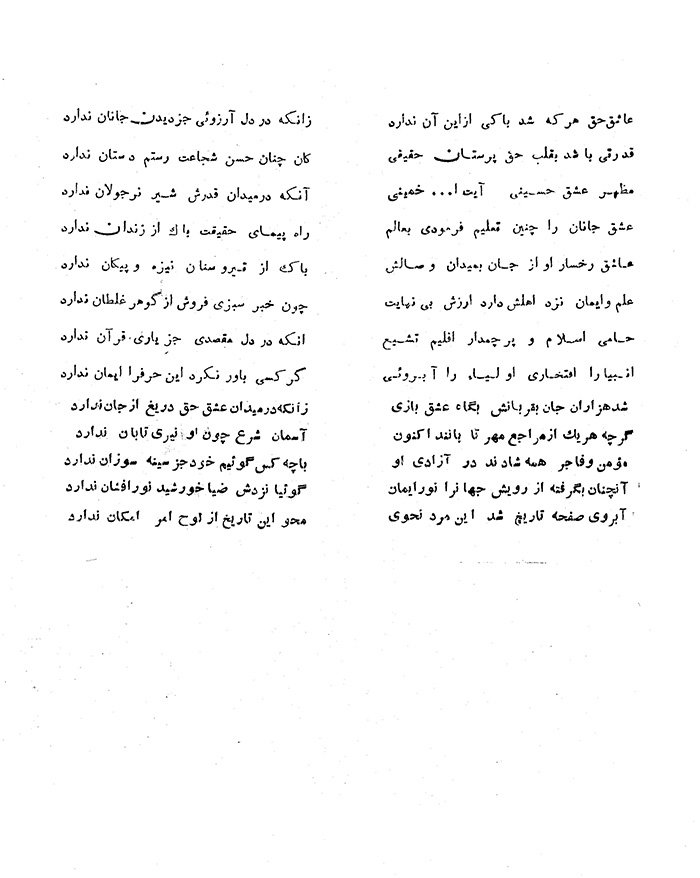 عاشق حق هر که شد باکی از این آن ندارد
زانکه در دل آرزوئی جز دیدن جانان ندارد
قدرتی باشد بقلب حق پرستان حقیقی
کان چنان حسن شجاعت رستم دستان ندارد
مظهر عشق حسینی آیت ا... خمینی
آنکه در میدان قدرش شیر نر جولان ندارد
عشق جانان را چنین تعلیم فرمودی بعالم
راه پیمای حقیقت باک از زندان ندارد
عاشق رخسار او از جان بمیدان وصالش
باک از تیر و سنان نیزه و پیکان ندارد
علم وایمان نزد اهلش دارد ارزش بی نهایت
چون خبر سبزی فروش از گوهر غلطان ندارد
حامی اسلام و پرچمدار اقلیم تشیع
انکه در دل مقصدی جز یاری قرآن ندارد
انبیا را افتخاری اولیاء را آبروئی
گر کسی باور نکرد این حرفرا ایمان ندارد
شد هزاران جان بقربانش بگاه عشق بازی
زآنکه در میدان عشق حق دریغ از جان ندارد
گرچه هر یك از مراجع مهر تابانند اکنون
آسمان شرع چون او نیری تابان ندارد
مؤمن وفاجر همه شادند در آزادی او
باچه کس گوئیم خود جز سینه سوزان ندارد
آنچنان بگرفته از رویش جهانرا نور ایمان
گوئیا نزدش ضیا خورشید نور افشان ندارد
آبروی صفحه تاریخ شد این مرد نحوی
محو این تاریخ از لوح امر امکان ندارد